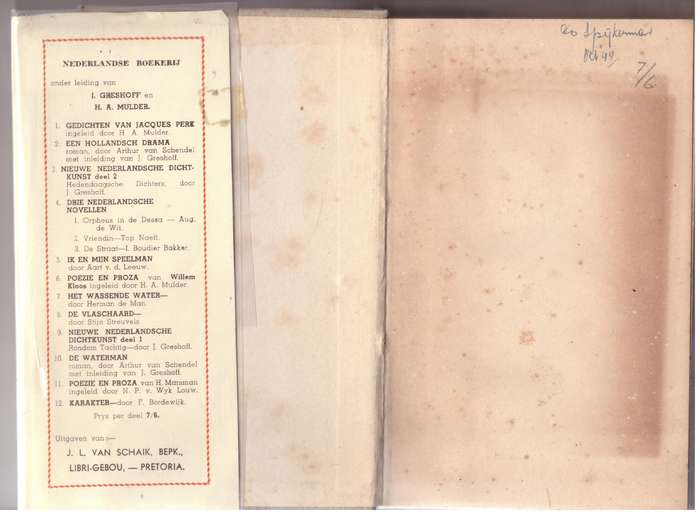 NEDERLANDSE BOEKERIJ
onder leiding van
J. GRESHOFF en
H. A. MULDER.
1. GEDICHTEN VAN JACQUES PERK
ingeleid door H. A. Mulder.
2. EEN HOLLANDSCH DRAMA
roman, door Arthur van Schendel
met inleiding van J. Greshoff.
3. NIEUWE NEDERLANDSCHE DICHT-
KUNST deel 2
Hedendaagsche Dichters, door
J. Greshoff.
4. DRIE NEDERLANDSCHE
NOVELLEN
1. Orpheus in de Dessa — Aug.
de Wit.
2. Vriendin—Top Naeff.
3. De Straat—I. Boudier Bakker.
5. IK EN MIJN SPEELMAN
door Aart v. d. Leeuw.
6. POEZIE EN PROZA van Willem
Kloos ingeleid door H. A. Mulder.
7. HET WASSENDE WATER—
door Herman de Man.
8. DE VLASCHAARD—
door Stijn Streuvels.
9. NIEUWE NEDERLANDSCHE
DICHTKUNST deel 1
Rondom Tachtig—door J. Greshoff.
10. DE WATERMAN
roman, door Arthur van Schendel
met inleiding van J. Greshoff.
11. POEZIE EN PROZA van H. Marsman
ingeleid door N. P. v. Wyk Louw.
12. KARAKTER—door F. Bordewijk.
Prys per deel 7/6.
Uitgaven van:—
J. L. VAN SCHAIK, BEPK.,
LIBRI-GEBOU, — PRETORIA.
Spijkerman
7/6